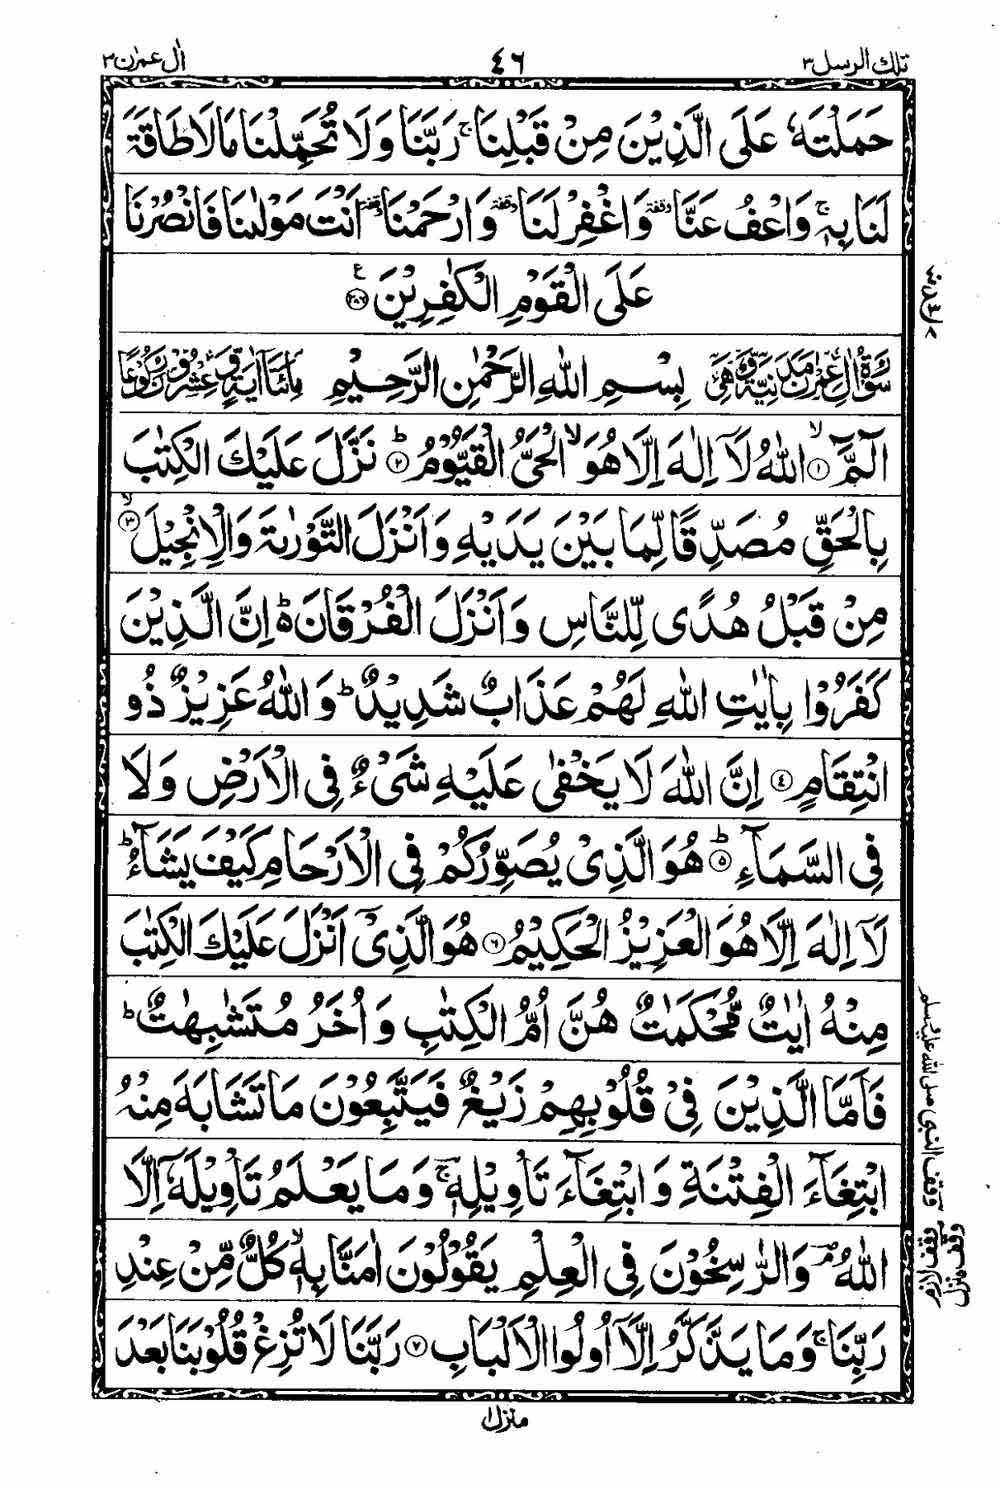 تلك الرسل ٣
٤٦
اٰل عمرٰن ٣
حَمَلْتَهٗ عَلَى الَّذِيْنَ مِنْ قَبْلِنَا ۚ رَبَّنَا وَلَا تُحَمِّلْنَا مَا لَا طَاقَةَ
لَنَا بِهٖ ۚ وَاعْفُ عَنَّا ۥوقفة وَاغْفِرْ لَنَا ۥوقفة وَارْحَمْنَا ۥوقفة اَنْتَ مَوْلٰىنَا فَانْصُرْنَا
عَلَى الْقَوْمِ الْكٰفِرِيْنَ ﴿٢٨٦﴾ ع
سُوْرَةُ اٰلِ عِمْرٰنَ مَدَنِيَّةٌ وَّهِيَ بِسْمِ اللهِ الرَّحْمٰنِ الرَّحِيْمِ مِائَتَا اٰيَةٍ وَّعِشْرُوْنَ رُكُوْعًا
الٓمّٓ ﴿١﴾ ۙ اللهُ لَآ اِلٰهَ اِلَّا هُوَ ۙ الْحَيُّ الْقَيُّوْمُ ﴿٢﴾ ؕ نَزَّلَ عَلَيْكَ الْكِتٰبَ
بِالْحَقِّ مُصَدِّقًا لِّمَا بَيْنَ يَدَيْهِ وَاَنْزَلَ التَّوْرٰىةَ وَالْاِنْجِيْلَ ﴿٣﴾ ۙ
مِنْ قَبْلُ هُدًى لِّلنَّاسِ وَاَنْزَلَ الْفُرْقَانَ ؕ اِنَّ الَّذِيْنَ
كَفَرُوْا بِاٰيٰتِ اللهِ لَهُمْ عَذَابٌ شَدِيْدٌ ؕ وَاللهُ عَزِيْزٌ ذُو
انْتِقَامٍ ﴿٤﴾ اِنَّ اللهَ لَا يَخْفٰى عَلَيْهِ شَيْءٌ فِى الْاَرْضِ وَلَا
فِى السَّمَآءِ ﴿٥﴾ ؕ هُوَ الَّذِيْ يُصَوِّرُكُمْ فِى الْاَرْحَامِ كَيْفَ يَشَآءُ ؕ
لَآ اِلٰهَ اِلَّا هُوَ الْعَزِيْزُ الْحَكِيْمُ ﴿٦﴾ هُوَ الَّذِيْٓ اَنْزَلَ عَلَيْكَ الْكِتٰبَ
مِنْهُ اٰيٰتٌ مُّحْكَمٰتٌ هُنَّ اُمُّ الْكِتٰبِ وَاُخَرُ مُتَشٰبِهٰتٌ ؕ
فَاَمَّا الَّذِيْنَ فِيْ قُلُوْبِهِمْ زَيْغٌ فَيَتَّبِعُوْنَ مَا تَشَابَهَ مِنْهُ
ابْتِغَآءَ الْفِتْنَةِ وَابْتِغَآءَ تَاْوِيْلِهٖ ۚ وَمَا يَعْلَمُ تَاْوِيْلَهٗٓ اِلَّا
اللهُ ۘ وَالرّٰسِخُوْنَ فِى الْعِلْمِ يَقُوْلُوْنَ اٰمَنَّا بِهٖ ۙ كُلٌّ مِّنْ عِنْدِ
رَبِّنَا ۚ وَمَا يَذَّكَّرُ اِلَّآ اُولُوا الْاَلْبَابِ ﴿٧﴾ رَبَّنَا لَا تُزِغْ قُلُوْبَنَا بَعْدَ
وقف النبي صلى الله عليه وسلم
وقف لازم
وقف منزل
منزل ١